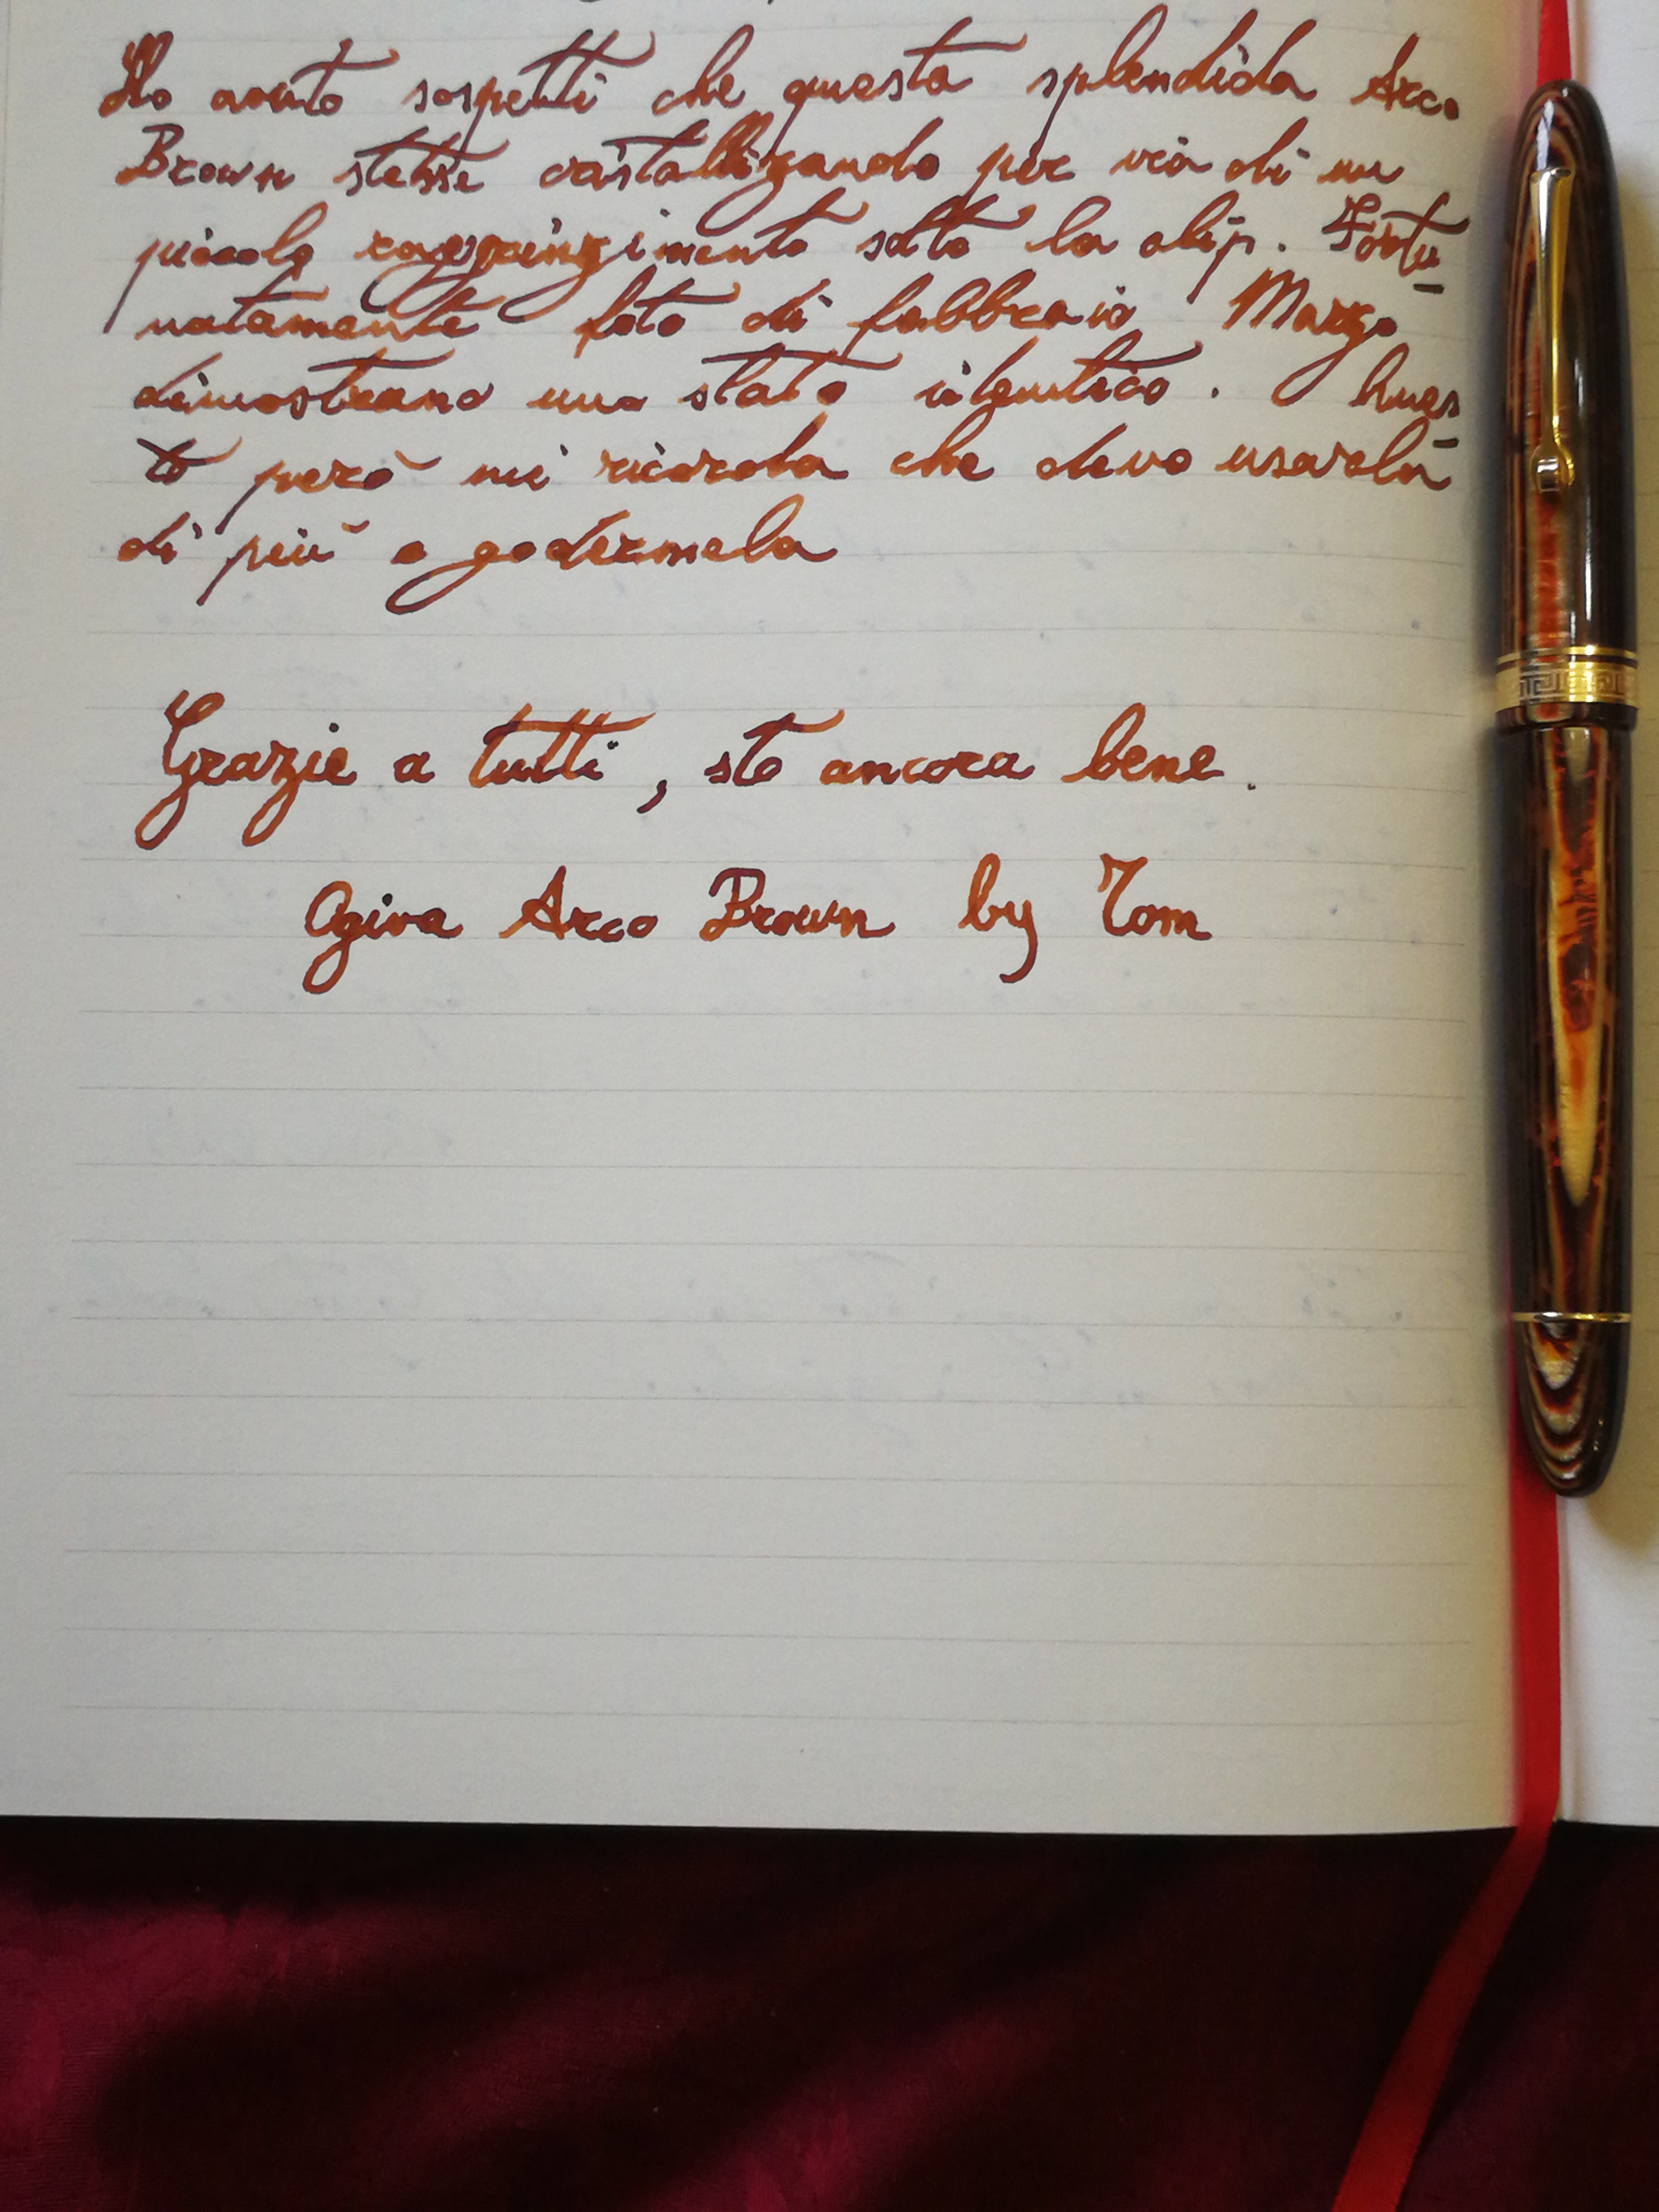 Ho avuto sospetti che questa splendida Arco
Brown stesse cristallizzando per via di un
piccolo raggrinzimento sotto la clip. Fortu
natamente foto di febbraio Marzo
dimostrano uno stato identico. Ques
to però mi ricorda che devo usarla
di più e godermela
Grazie a tutti, sto ancora bene.
Ogiva Arco Brown by Tom